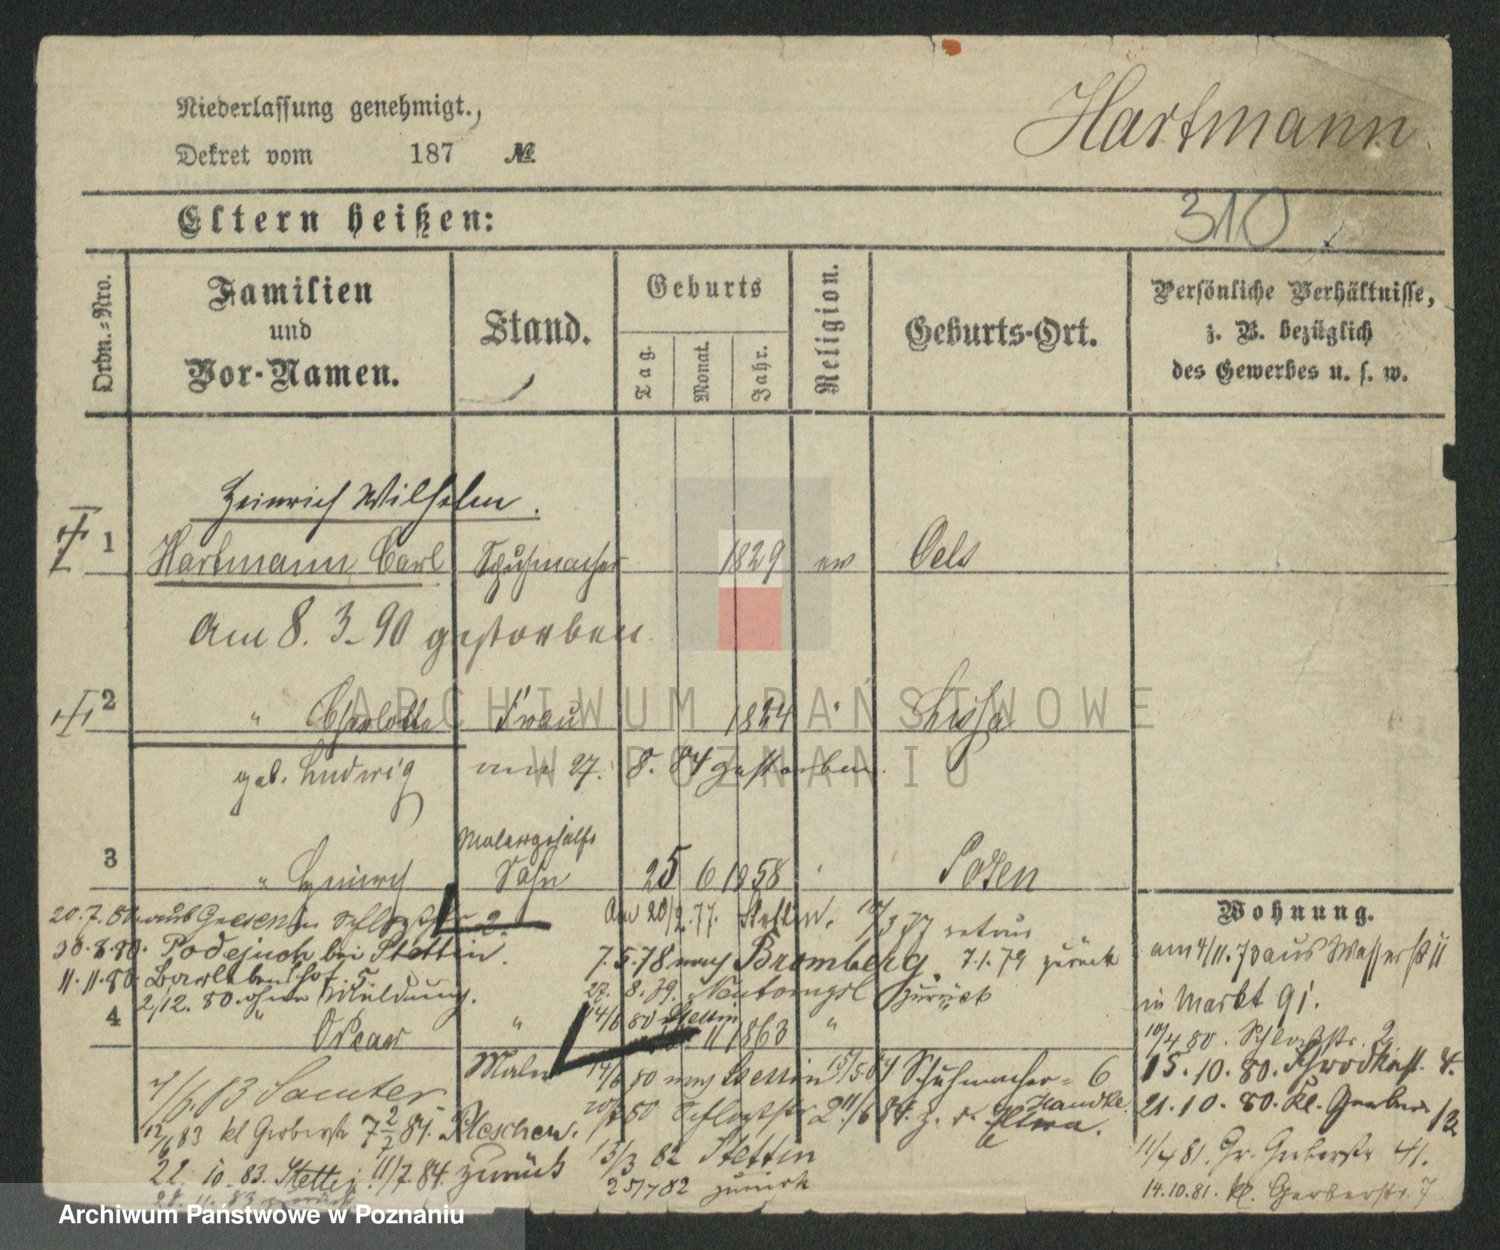 Niederlassung genehmigt.,
Dekret vom 187 №
Hartmann
Eltern heißen:
310
Ordn.=Nro.
Familien
und
Vor-Namen.
Stand.
Geburts
Tag.
Monat.
Jahr.
Religion.
Geburts-Ort.
Persönliche Verhältnisse,
z. B. bezüglich
des Gewerbes u. s. w.
Heinrich Wilhelm.
1 Hartmann Carl Schuhmacher 1829 ev Oels
Am 8. 3. 90 gestorben.
2 " Charlotte Frau 1824 " Lissa
geb. Ludwig am 27. 8. 84 gestorben.
Malergehülfe
3 " Heinrich Sohn 25 6 1858 " Posen
20.7.80. aus 2.
Am 20/2.77. Stettin. 3 77 retour
30.8.80. Podejuch bei Stettin.
7.5.78 nach Bromberg. 7.1.79 zurück
11.11.80
27. 8. 79. zurück
2/12. 80. ohne Meldung.
80 Stettin
4 " Oskar " 11 1863 "
Maler
80 nach Stettin 15/5 84 Schuhmacher= 6
7/6.83 Samter
Handke.
83 kl Gerberstr 7 Pleschen.
13/3 82 Stettin
22. 10. 83. Stettin 11/7.84. zurück
25/7 82 zurück
28. 11. 83 zurück
Wohnung.
am 4/11.73 aus Wasserstr 11
in Markt 91.
10/4 80. Schloßstr. 2.
15. 10. 80. Schrodkastr. 4.
21. 10. 80. kl. Gerber 12
11/4 81. Gr. Gerberstr 41.
14.10.81. kl. Gerberstr. 7
ARCHIWUM PAŃSTWOWE
W POZNANIU
Archiwum Państwowe w Poznaniu